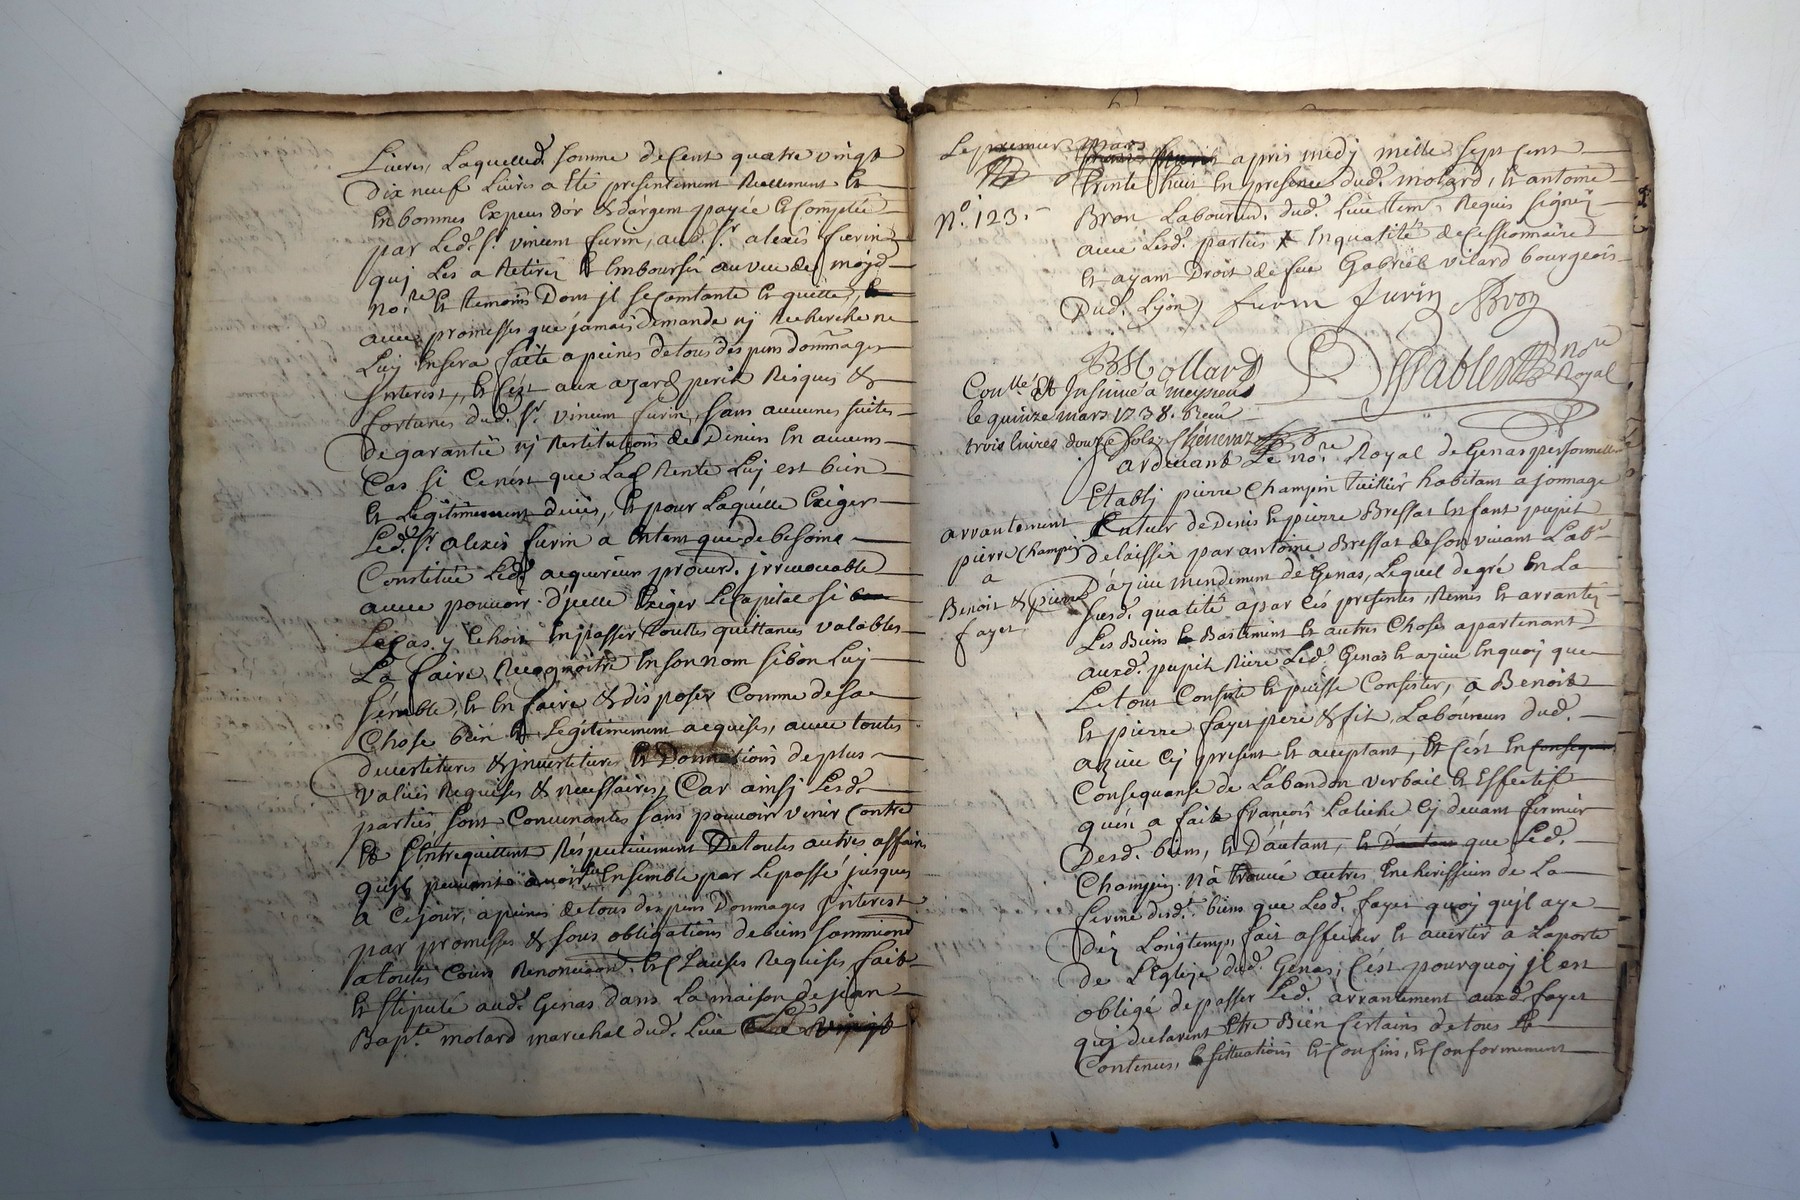 Livres, Laquelled. somme de Cent quatre vingt
dix neuf Livres a êté presentement Reellement et
En bonnes Especes d'or & d'argent payée et Comptée
par Led. Sr. vincent furin, aud. Sr. alexis furin
quj Les a Retirés Et Emboursés au vue de moyd.
nore. Et temoins Dont jl se contante et quitte,
avec promesses que jamais demande nj Recherche ne
Luy En sera faite a peines de tous despens dommages
jnterest, et C'est aux azard, peril Risques &
fortunes dud. Sr. vincent furin, sans aucunes suites
de garantie nj Restitutions de Deniers En aucuns
Cas si Ce n'est que Lad. Rente Luj est bien
Et Légitimement deüe, et pour Laquelle Exiger
Led. Sr. alexis furin a Entent que de besoing
Constitué Led. acquereur procur. jrrevocable
avec pouvoir d'jcelle Exiger Le Capital si
Le Cas y Echoit En passer toutes quittances valables
La faire Recognoitre En son nom si bon Luy
sémble, et En faire & disposer Comme de sa
Chose bien Et Legitimement acquise, avec toutes
devertitures & jnvertitures Et Donnations de plus
values Requises & necessaires, Car ainsj Lesd.
parties sont Convenantes sans pouvoir venir Contre
Et s'Entrequittent Réspectivement De toutes autres affaires
qu'jls peuvent avoir eu Ensemble par Le passé jusques
a Ce jour, a peines de tous despens Dommages jnterest
par promesses & sous obligations de biens soummiond
a toutes Cours Renonciaon. et Clauses Requises, fait
Et stipulé aud. Genas dans La maison de jean
Bapte. motard marechal dud. Lieu
Le premier mars apres midj mille sept Cent
trente huit En presence dud. motard, Et antoine
No. 123. Bron Laboureur. dud. Lieu tem. Requis signés
avec Lesd. parties En qualité de Cessionnaire
et ayant Droit de feu Gabriël vilard bourgeois
Dud. Lyon, furin furin Bron
B Mollard nore Royal
Conlle. Et Jnsinué a meyzieu
le quinze mars 1738. Receu
trois livres douze sols
Pardevant Le nore. Royal de Genas personnellem
Etablj pierre Champin tuillier habitant a jonnage
arrantement
pierre Champin
a
Benoit & pierre
fayet
tuteur de Denis Et pierre Bressat Enfant pupil
delaissés par antoine Bressat de son vivant Labr
D'azieu mendement de Genas, Lequel de gré En La
susd. qualité a par Cés presentes, Remis Et arranté
Les Biens Bastiment Et autres Choses apartenant
auxd. pupil Riere Led. Genas Et azieu En quoj que
Le tout Consiste Et puisse Consister, a Benoit
Et pierre fayet pere & fils, Laboureurs dud.
azieu Cj present Et acceptant, Et C'ést En
Consequanse de L'abandon verbail Et Effectif
qu'en a fait françois Latiche Cj devant fermier
Desd. biens, Et D'autant, que Led.
Champin n'a trouvé autres Encherisseurs de La
ferme desd. biens que Lesd. fayet quoj qu'jl aye
Dez Longtemps fait afficher Et avertir a La porte
de L'Eglize dud. Genas, C'ést pourquoj jl est
obligé de passer Led. arrantement auxd. fayet
quj declarent Etre Bien Certains de tous Le
Contenus, situations Et Confins, Et Conformement